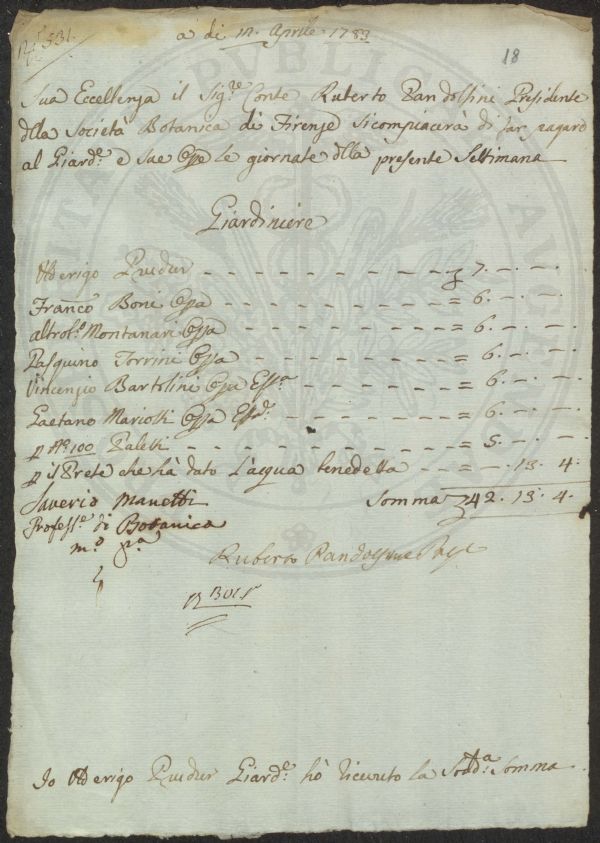 N.° 531.
a di 12. Aprile 1783
18
Sua Eccellenza il Sig.re Conte Ruberto Pandolfini Presidente
della Società Botanica di Firenze si compiacerà di far pagare
al Giard.e e sue Opre le giornate della presente Settimana
Giardiniere
Olderigo - - - - - - - - 7. - . -
Franco Boni Opra - - - - - - - = 6. - . -
altro f.o Montanari Opra - - - - - - = 6. - . -
Pasquino Torrini Opra - - - - - - = 6. - . -
Vincenzio Bartolini Opra - - - - = 6. - . -
Gaetano Mariotti Opra - - - - = 6. - . -
p N.° 100 Paletti - - - - - - - = 5. - . -
p il Prete che hà dato l'acqua benedetta - - = - . 13. 4.
Saverio Manetti Somma 42. 13. 4.
Profess.e di Botanica
m.o p.a
Ruberto Pandolfini
Io Olderigo Giard.e hò ricevuto la Sodd.a Somma
PUBLICAE